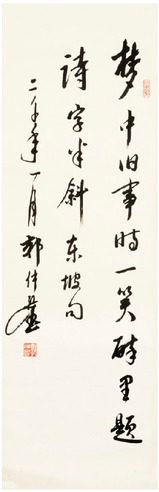 梦中旧事时一笑醉里题
詩字半斜东坡句
二千年一月郭仲